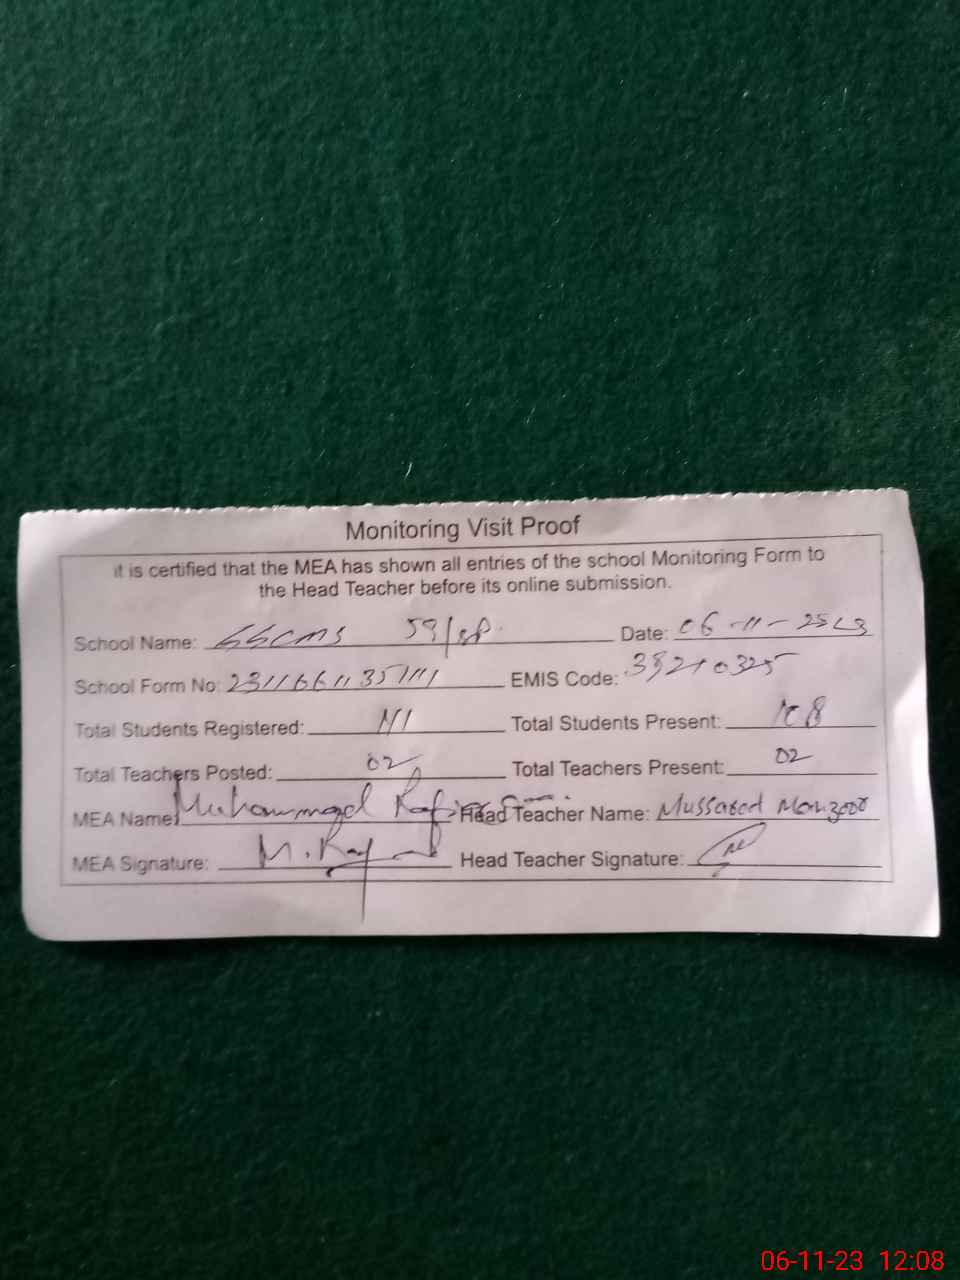 Monitoring Visit Proof
it is certified that the MEA has shown all entries of the school Monitoring Form to
the Head Teacher before its online submission.
School Name: 59/SP. Date: 06-11-2023
School Form No: EMIS Code:
Total Students Registered: Total Students Present: 108
Total Teachers Posted: 02 Total Teachers Present: 02
MEA Name: Muhammad Head Teacher Name: Mussarat Manzoor
MEA Signature: Head Teacher Signature:
06-11-23 12:08